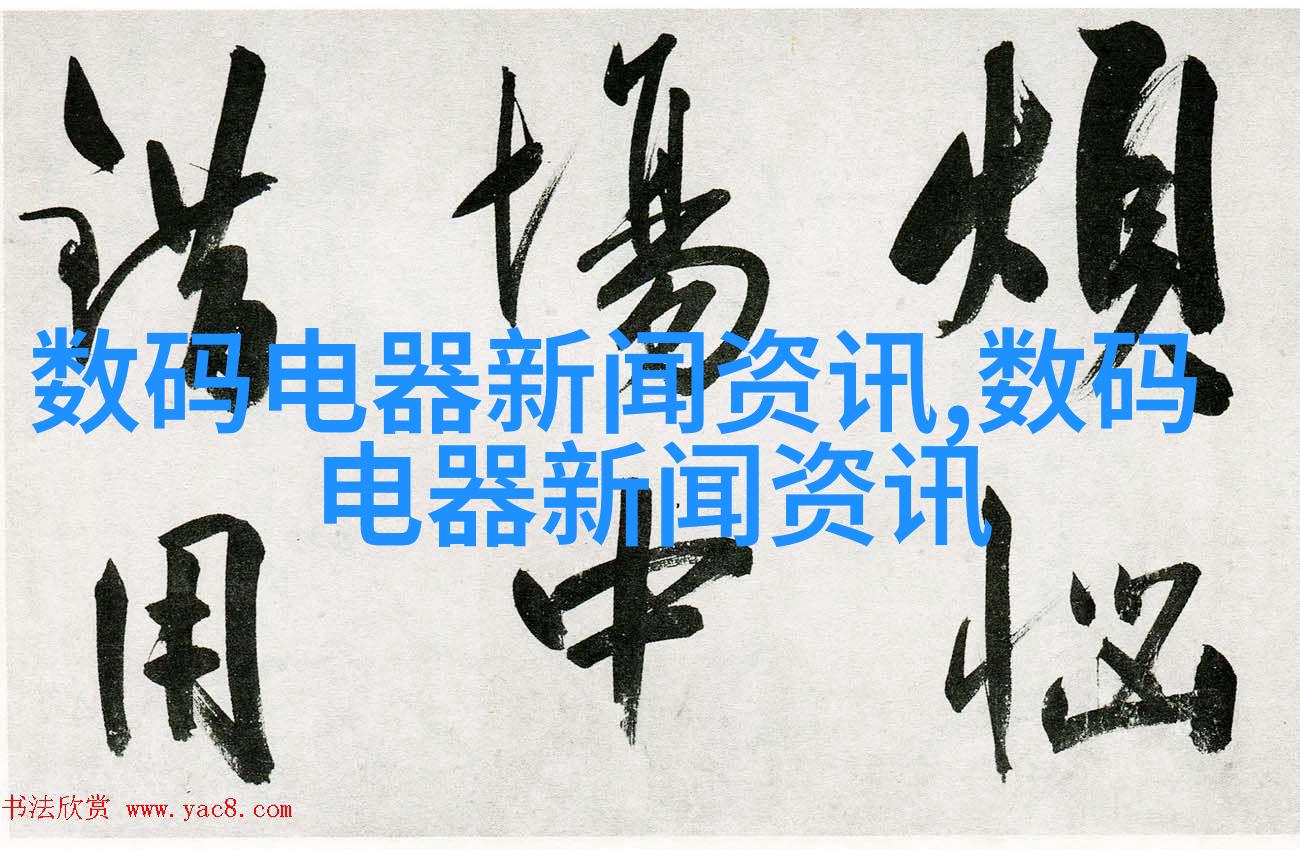 煩惱
場中
错用
数码电器新闻资讯,数码
电器新闻资讯
书法欣赏 www.yac8.com